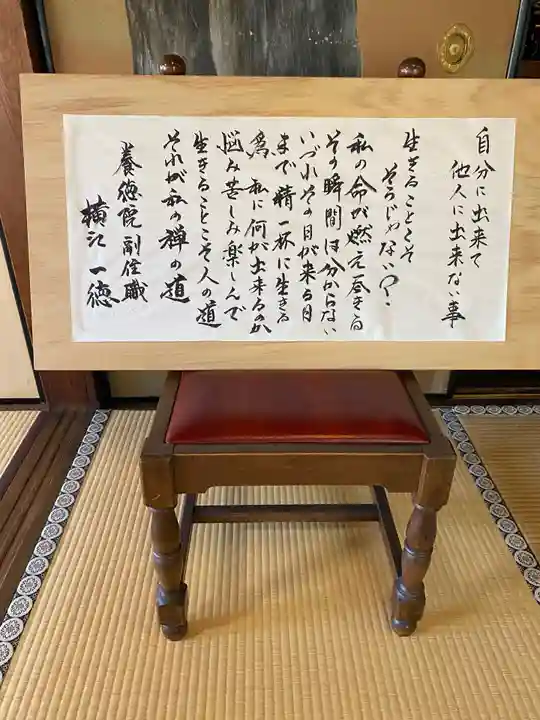 自分に出来て
他人に出来ない事
生きることこそ
そうじゃない?
私の命が燃え尽きる
その瞬間は分からない
いづれその日が来る日
まで精一杯に生きる
為、私に何が出来るのか
悩み苦しみ楽しんで
生きることこそ人の道
それが私の禅の道
養徳院副住職
横江一徳